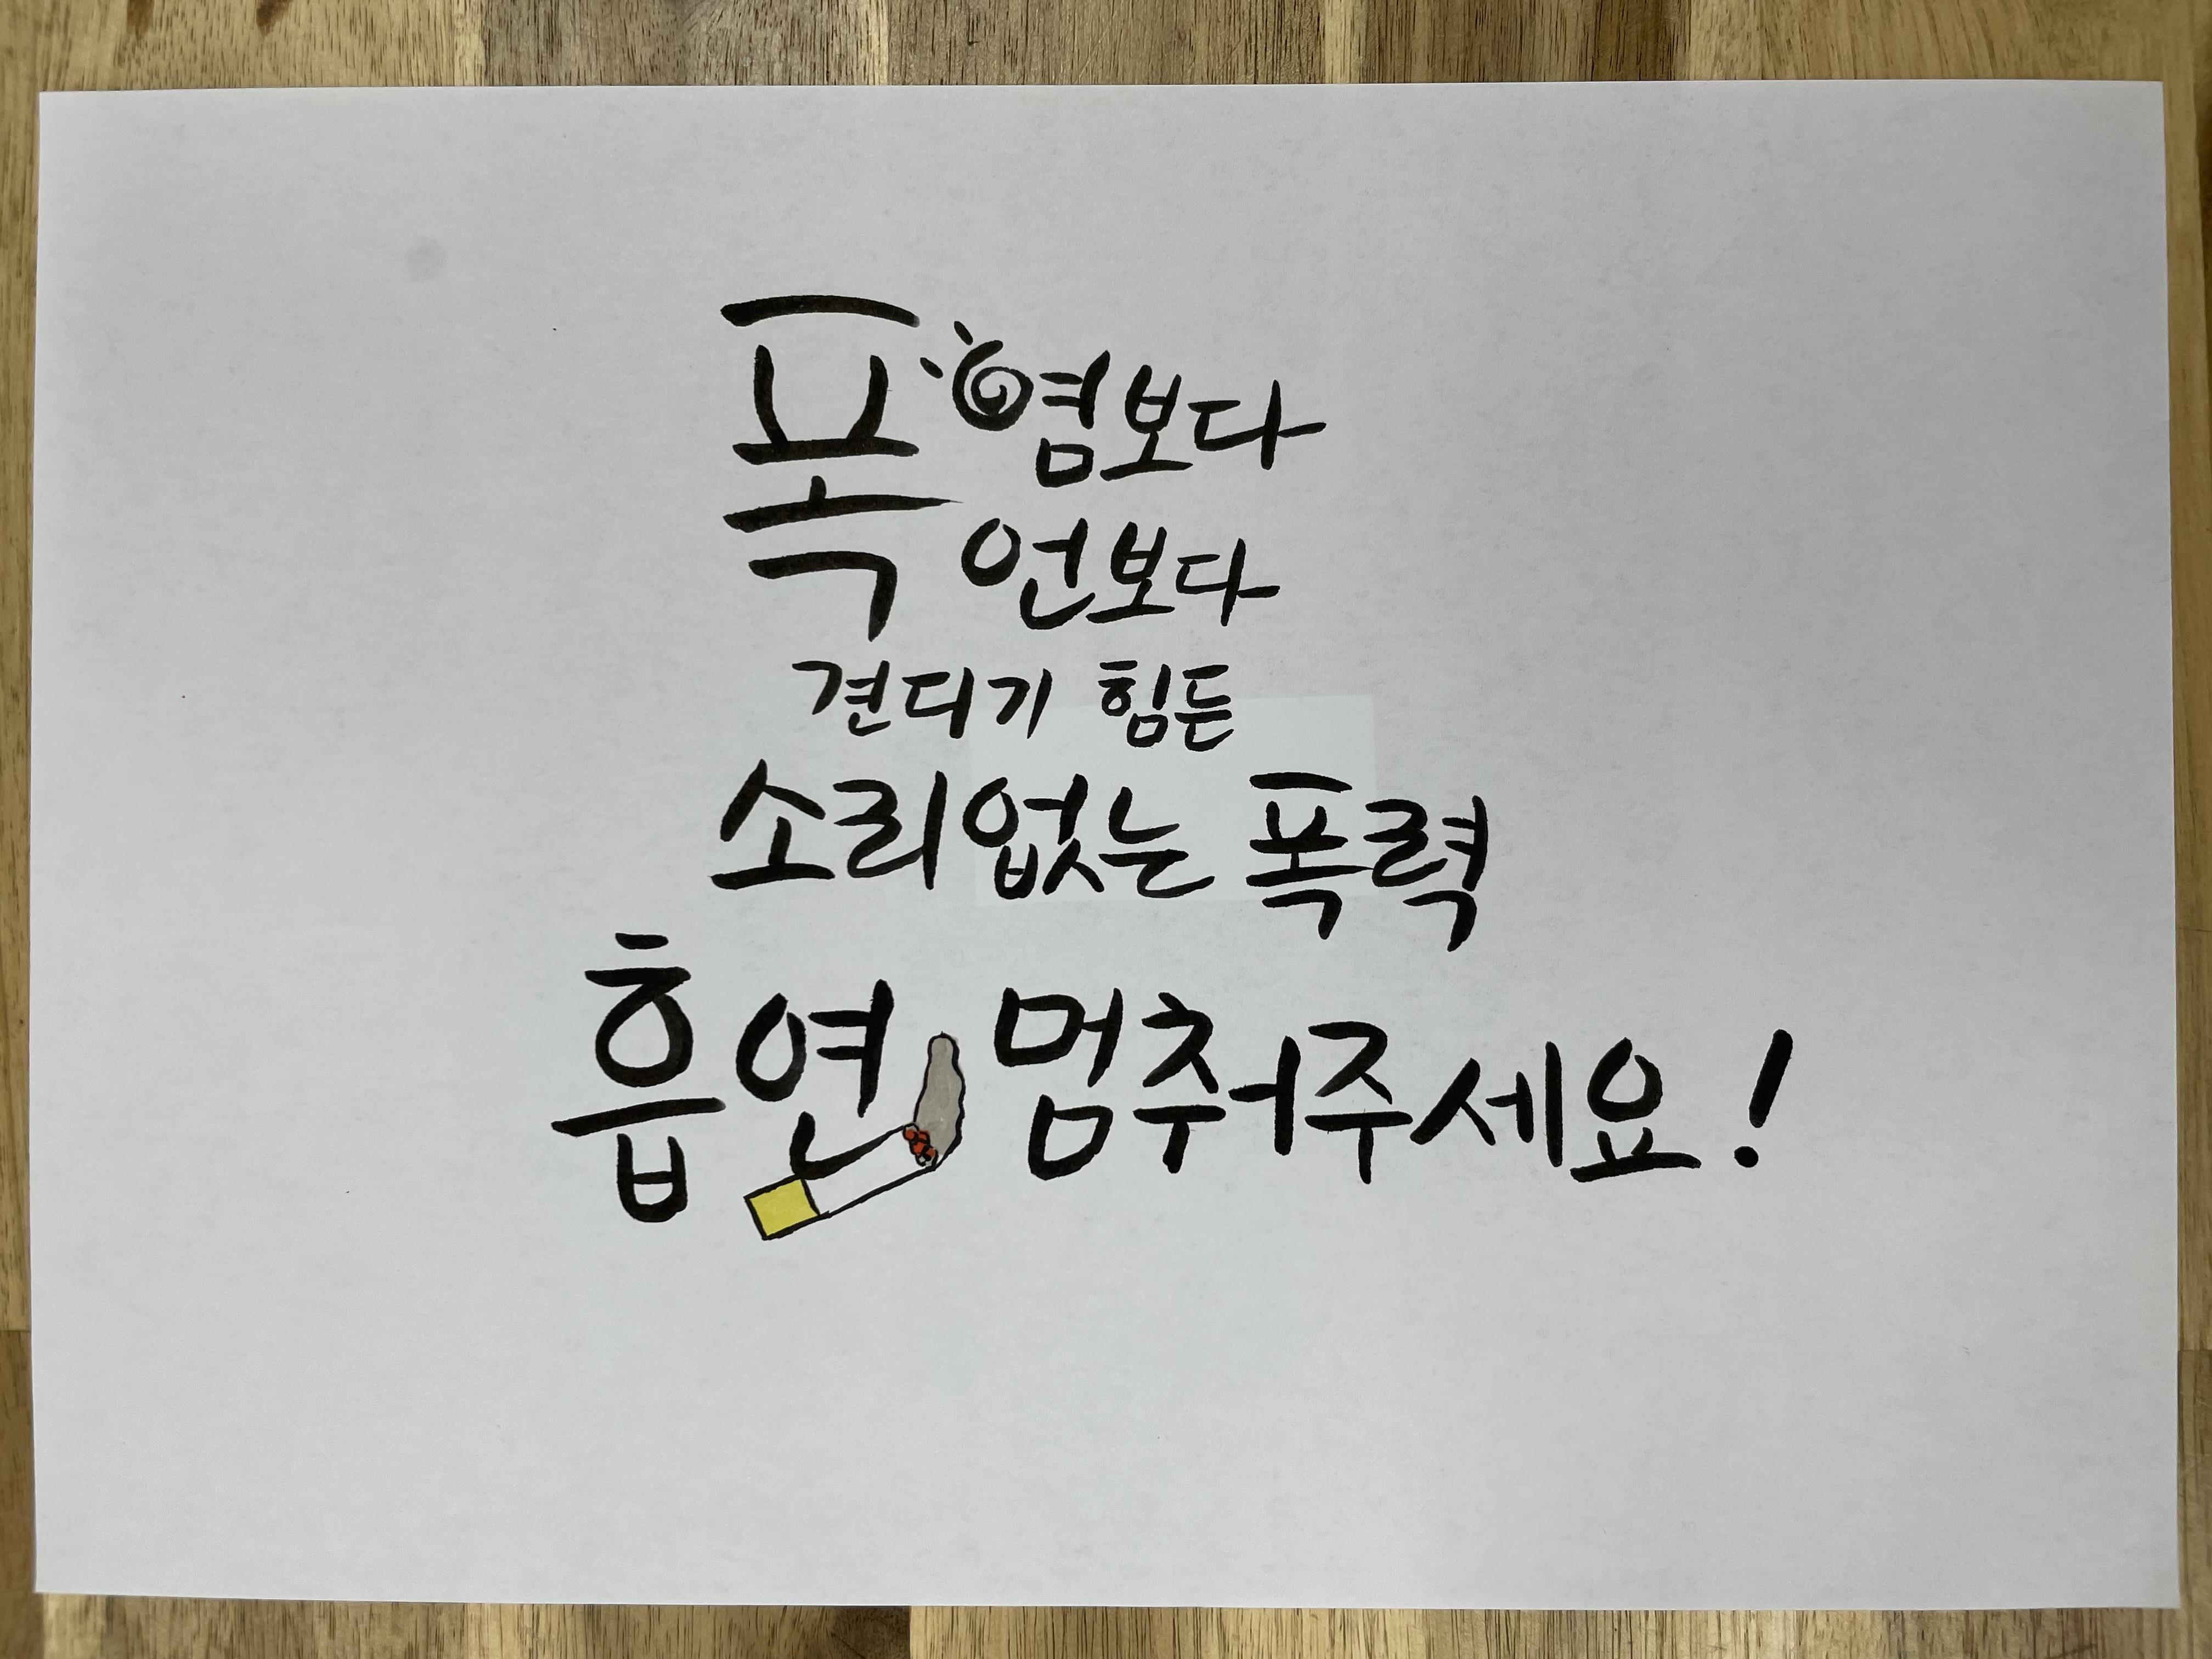 폭염보다
언보다
견디기 힘든
소리없는 폭력
흡연 멈춰주세요!